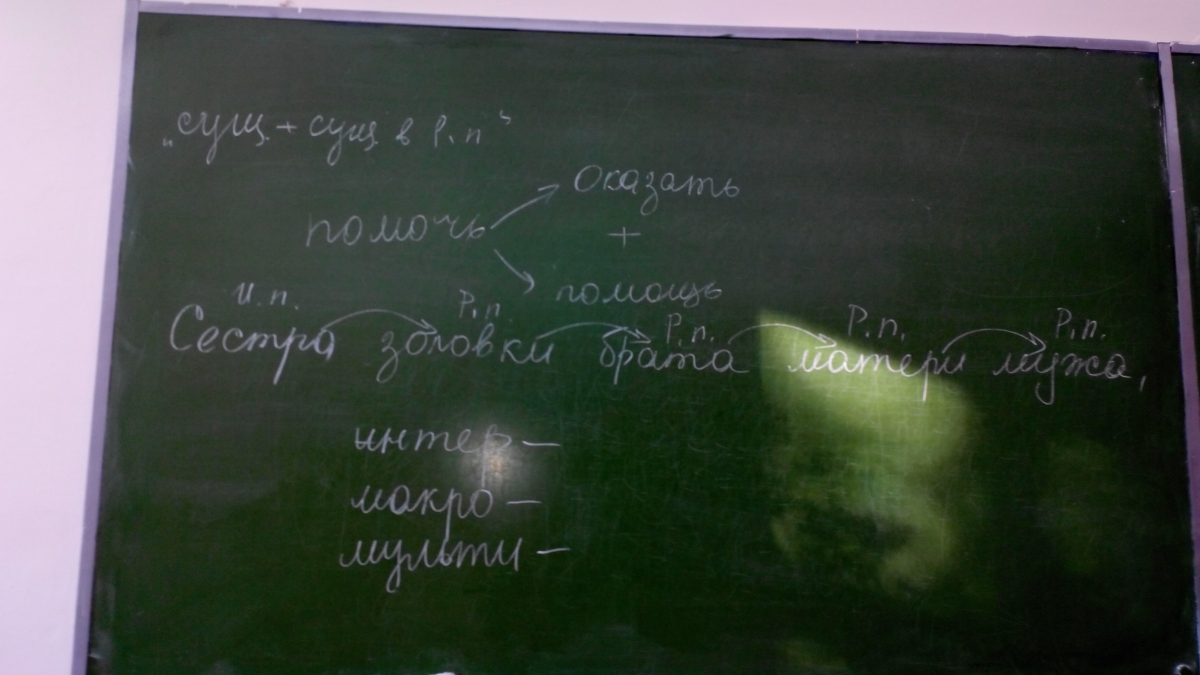 „сущ. + сущ. в Р. п"
оказать
помочь
+
помощь
И. п. Р. п. Р. п. Р. п. Р. п.
Сестра золовки брата матери мужа,
интер –
макро –
мульти –